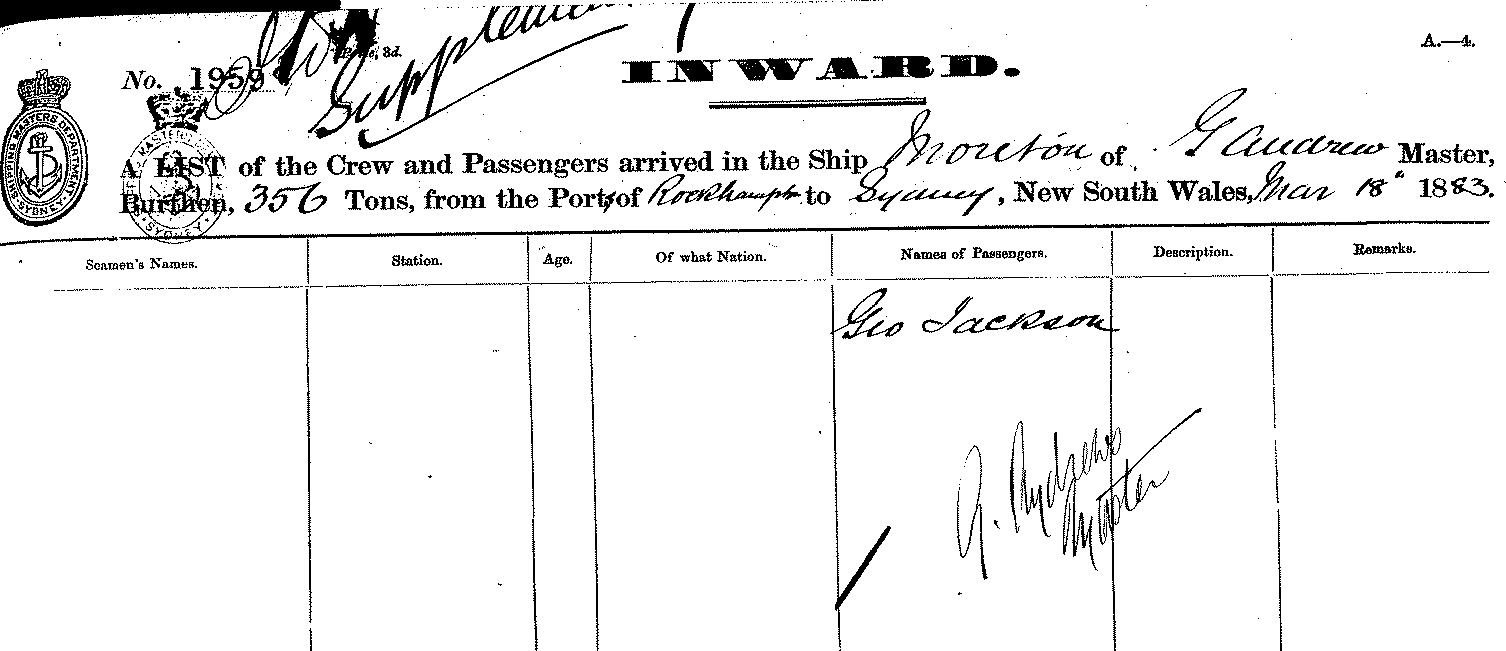 A.—4.
No. 1959
Supplementary
INWARD.
SHIPPING MASTERS DEPARTMENT
SYDNEY
A LIST of the Crew and Passengers arrived in the Ship Moreton of G Andrew Master,
Burthen, 356 Tons, from the Port of Rockhampt to Sydney, New South Wales, Mar 18" 1883.
Seamen's Names. Station. Age. Of what Nation. Names of Passengers. Description. Remarks.
Geo Jackson
G. Andrews
Master